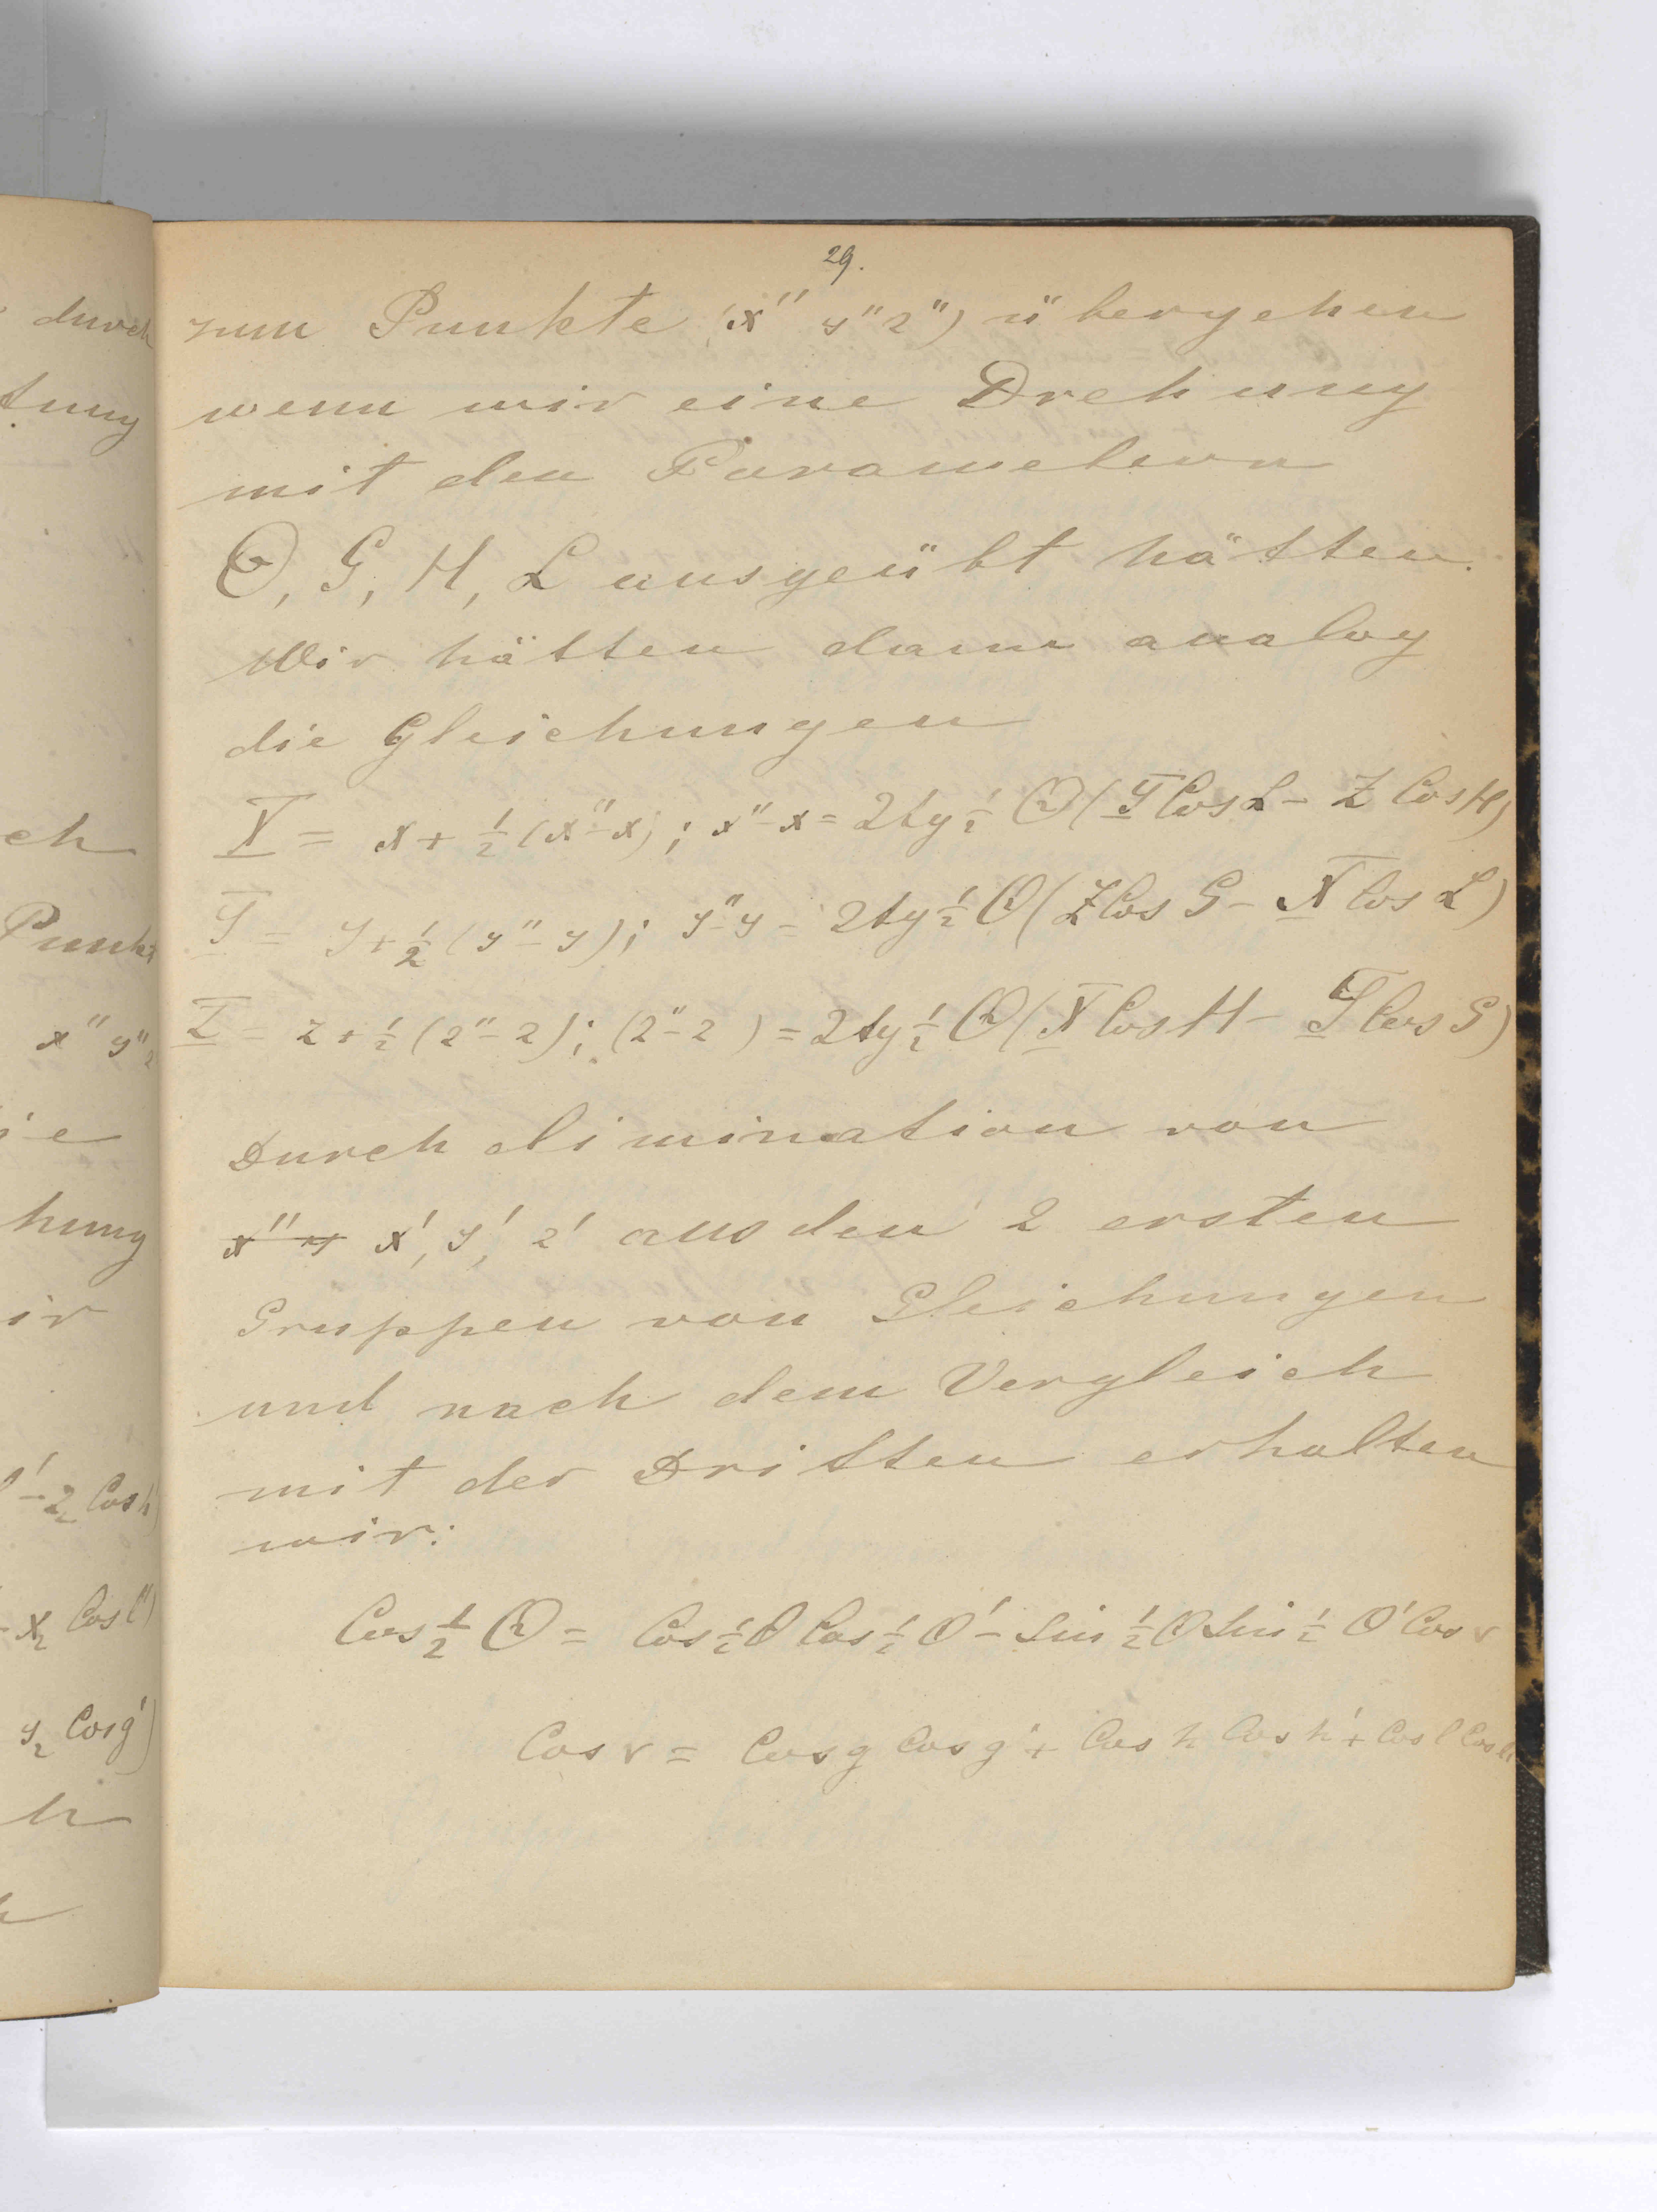 29.
zum Punkte (x'' y'' z'') übergehen
wenn wir eine Drehung
mit den Parametern
Θ, G, H, L ausgeübt hätten.
Wir hätten dann analog
die Gleichungen
X = x + ½ (x''-x); x''-x = 2tg½ Θ (Y Cos L - Z Cos H)
Y = y + ½ (y''-y); y''-y = 2tg½ Θ (Z Cos G - X Cos L)
Z = z + ½ (z''-z); (z''-z) = 2tg½ Θ (X Cos H - Y Cos G)
Durch elimination von
x'' y x', y', z' aus den 2 ersten
Gruppen von Gleichungen
und nach dem Vergleich
mit der Dritten erhalten
wir:
Cos ½ Θ = Cos ½ θ Cos ½ θ' - Sin ½ θ Sin ½ θ' Cos v
Cos v = Cos g Cos g' + Cos h Cos h' + Cos l Cos l'
durch
tung
ch
Punkt
x'' y'' z
ie
hung
ir
l' - z₂ Cos h'
- x₂ Cos l')
y₂ Cos g')
h